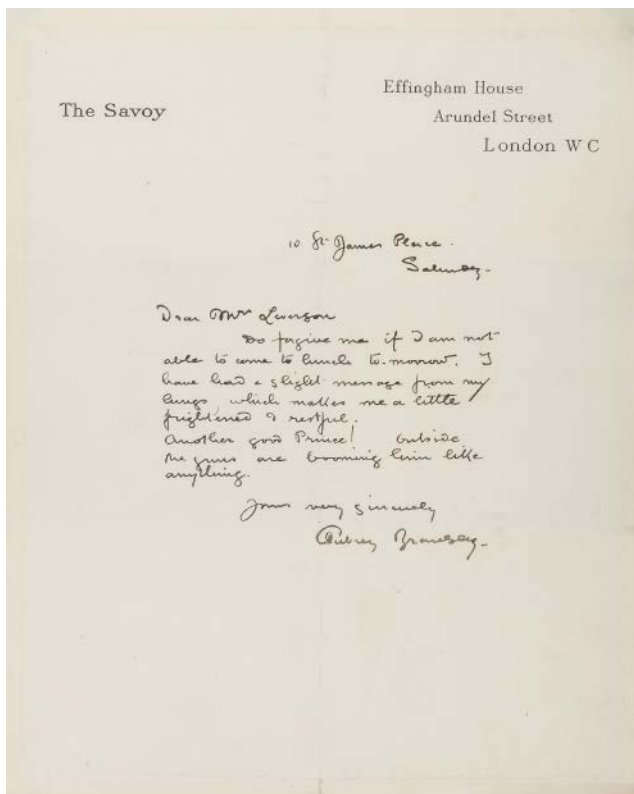 The Savoy
Effingham House
Arundel Street
London W C
10 St James Place.
Saturday.
Dear Mrs Leverson
Do forgive me if I am not
able to come to lunch to-morrow. I
have had a slight message from my
lungs, which makes me a little
frightened & restful.
Another good Prince! Outside
the guns are booming him like
anything.
Yours very sincerely
Aubrey Beardsley.